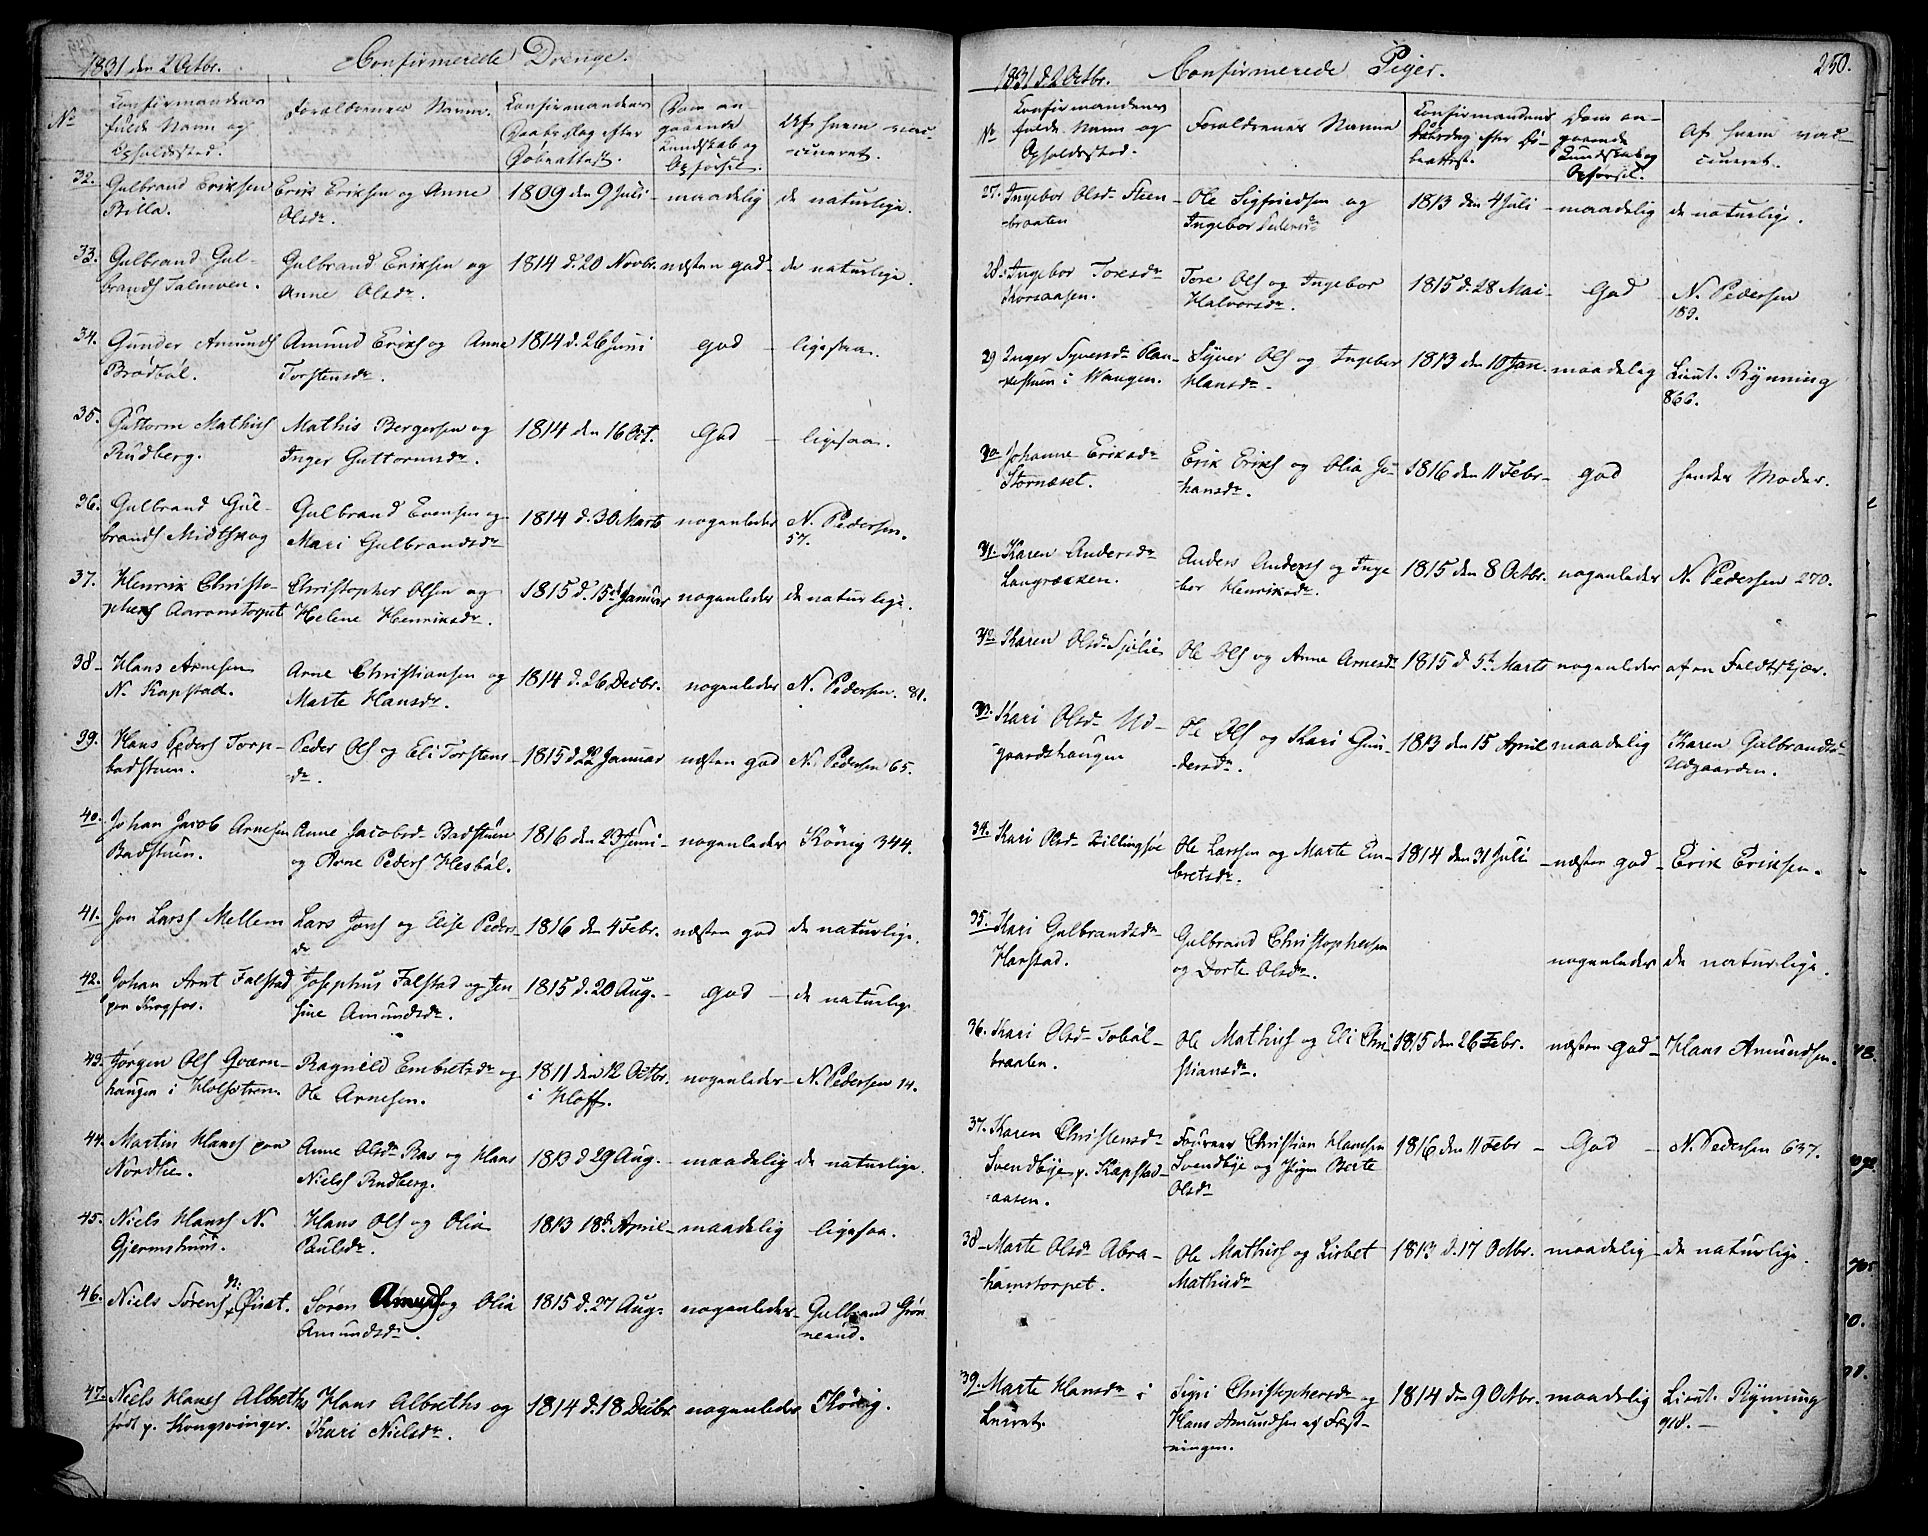 1831 den 2 Octbr. Confirmerede Drenge.
No
Confirmandens
fulde Navn og
Opholdssted.
Forældrenes Navne.
Confirmandens
Daabsdag efter
Døbeattest.
Dom an
gaaende
Kundskab og
Opførsel.
Af hvem vac-
cineret.
32. Gulbrand Eriksen
Billa.
Erik Eriksen og Anne
Olsdr.
1809 den 9 Juli - maadelig de naturlige.
33. Gulbrand Gul-
brands Talmoen.
Gulbrand Eriksen og
Anne Olsdr.
1814 d. 20 Novbr. næsten god - de naturlige
34. Gunder Amunds
Brødbøl.
Amund Eriks og Anne
Torstensdr.
1814 d. 26 Juni god - ligesaa.
35. Guttorm Mathis
Rudberg.
Mathis Bergersen og
Inger Guttormsdr.
1814 den 16 Oct. God - ligesaa.
36. Gulbrand Gul-
brands Midtskog
Gulbrand Evensen og
Mari Gulbrandsdr
1814 d. 30 Marts noganleder N. Pedersen.
57.
37. Henrik Christo-
phers Aaranstorpet
Christopher Olsen og
Helene Henriksdr.
1815 d. 15d Januar noganleder de naturlige.
38 - Hans Arnesen
N. Kapstad.
Arne Christiansen og
Marte Hansdr.
1814 d. 26 Decbr. noganleder N. Pedersen. 81.
39. Hans Peders Torp-
badstuen.
Peder Ols og Eli Torstens
dr.
1815 d 22 Januar næsten god N. Pedersen 65.
40. Johan Jacob Arnesen
Badstuen.
Anne Jacobsdr Badstuen
og Arne Peders Hesbøl.
1816 den 23 Juni - noganleder König 344.
41. Jon Lars Mellem
Lars Jons og Elise Peders-
dr
1816 den 4 Febr. næsten god de naturlige.
42. Johan Arnt Falstad
paa Kongfos.
Josephus Falstad og Jen-
sine Amundsdr.
1815 d. 20 Aug. - god - de naturlige
43. Jørgen Ols Qværn-
haugen i Hofsstrøm.
Ragnild Embretsdr og
Ole Arnesen.
1811 den 12 Octbr.
i Hoff.
noganleder - N. Pedersen 14.
44. Martin Hans paa
Nordlie.
Anne Olsdr Bas og Hans
Niels Rudberg.
1813 d 29 Aug. - maadelig de naturlige.
45. Niels Hans N.
Gjermshuus.
Hans Ols og Olia
Paulsdr.
1813 18d April - maadelig ligesaa.
46. Niels Sørens N: Øisæt.
Søren Amunds og Olia
Amundsdr.
1815 d. 27 Aug. noganleder - Gulbrand Grøn
neaud.
47. Niels Hans Albreths
født p. Kongsvinger.
Hans Albreths og
Kari Nielsdr.
1814 d. 18 Decbr noganleder König.
1831 d. 2 Octbr. Confirmerede Piger. 250.
No
Confirmandens
fulde Navn og
Opholdssted.
Forældrenes Navne
Confirmandens
Daabsdag efter Dø-
beattest.
Dom an-
gaaende
Kundskab og
Opførsel.
Af hvem vac-
cineret.
27. Ingebor Olsdr Steen-
braaten
Ole Sigfriedsen og
Ingebor Pedersdr
1813 den 4 Juli - maadelig de naturlige.
28. Ingebor Toresdr
Korsaasen.
Tore Ols og Ingebor
Halvorsdr.
1815 d. 28 Mai - God - N. Pedersen
189.
29 Inger Syversdr Plan-
kestuen i Wangen.
Syver Ols og Ingebor
Hansdr.
1813 den 10 Jan. maadelig Lieut. Rynning
866.
30 Johanne Eriksdr
Stornæset.
Erik Eriks og Olia Jo-
hansdr.
1816 den 11 Febr - god hendes Moder.
31. Karen Andersdr
Langræksen.
Anders Anders og Inge
bor Henriksdr.
1815 den 8 Octbr. noganleder N. Pedersen 270.
32. Karen Olsdr Sjølie
Ole Ols og Anne Arnesdr
1815 d 5t Marts noganleder af en Feldtskjær.
33. Kari Olsdr Ud-
gaardshaugen
Ole Ols og Kari Gun-
dersdr.
1813 den 15 April maadelig Karen Gulbrandsd-
Udgaarden.
34. Kari Olsdr Zillingsøe
Ole Larsen og Marte Em-
bretsdr.
1814 den 31 Juli - næsten god - Erik Eriksen.
35. Kari Gulbrandsdr
Harstad.
Gulbrand Christophersen
og Dorte Olsdr.
noganleder de naturlige.
36. Kari Olsdr Tobøl-
braaten.
Ole Mathis og Eli Chri
stiansdr.
1815 den 26 Febr. næsten god - Hans Amundsen.
37. Karen Christensdr
Svendbye p. Kapstad-
aasen.
Foureer Christian Hansen
Svendbye og Pigen Berte
Olsdr
1816 den 11 Febr - God - N. Pedersen 637.
38 - Marte Olsdr Abra-
hamstorpet.
Ole Mathis og Lisbet
Mathisdr
1813 d. 17 Octbr. maadelig - de naturlige.
39. Marte Hansdr i
Leiret.
Sigri Christophersdr og
Hans Amundsen af Fæst-
ningen.
1814 den 9 Octbr. maadelig Lieut. Rynning
918. -